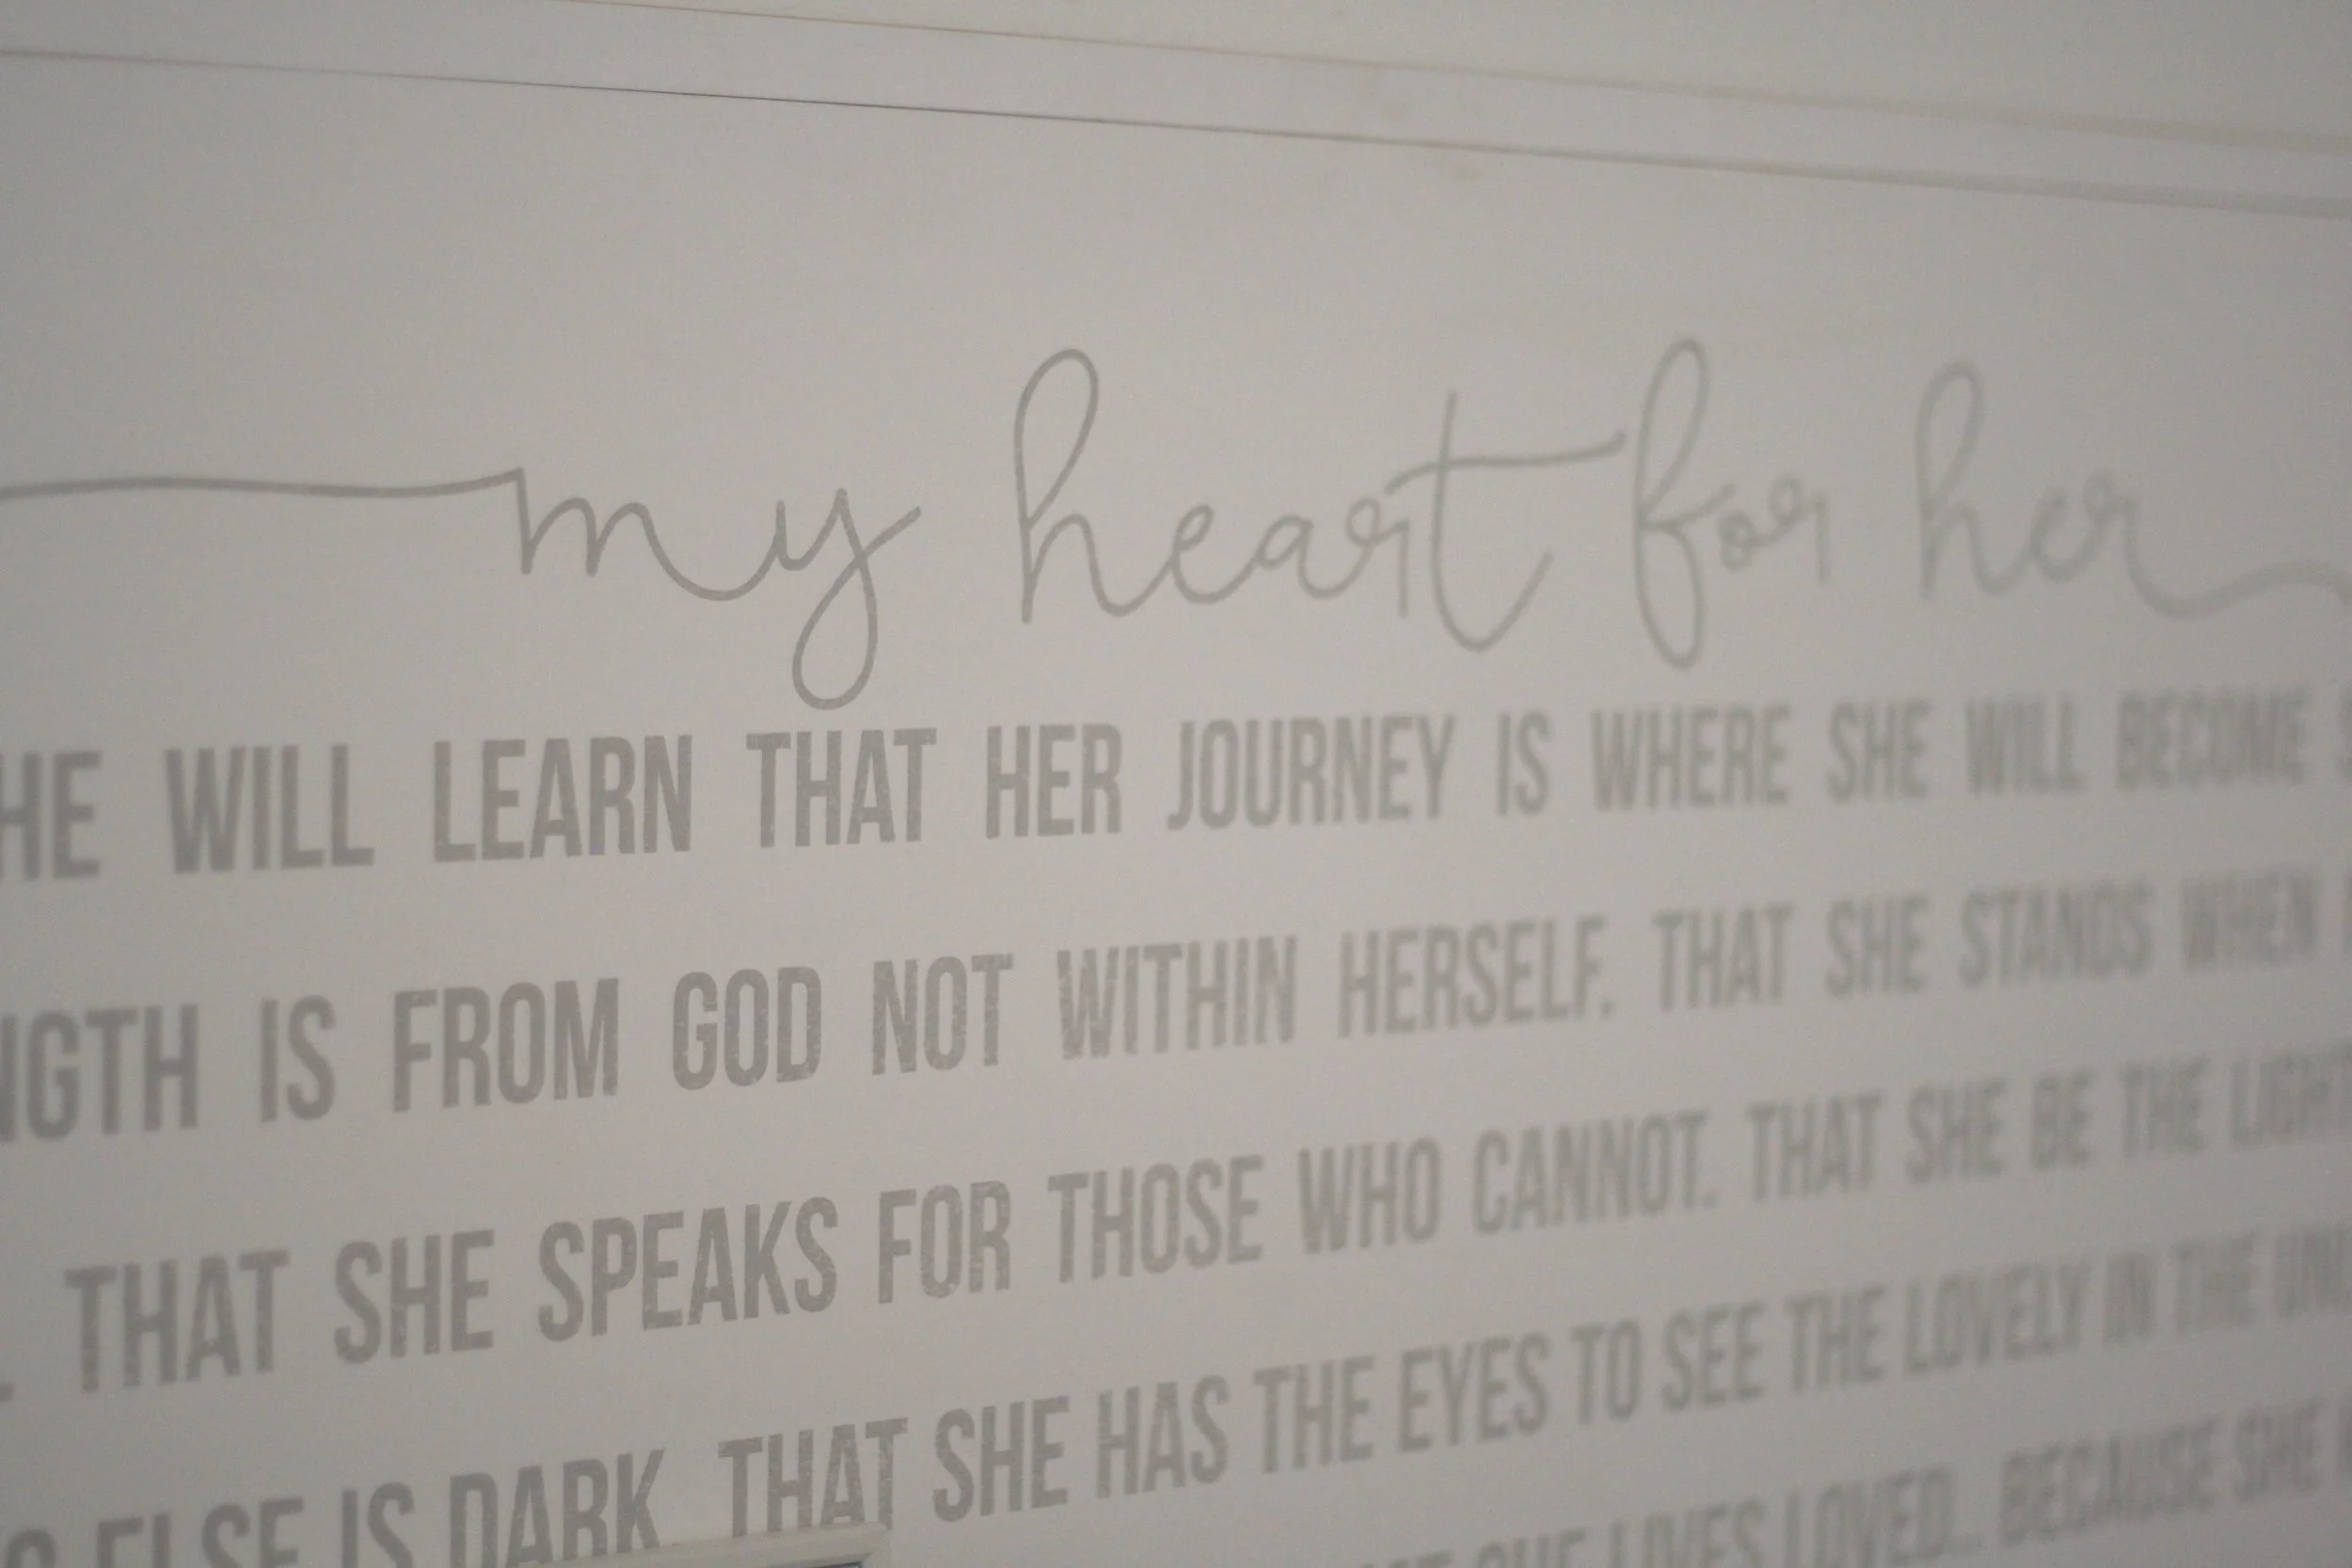 my heart for her
HE WILL LEARN THAT HER JOURNEY IS WHERE SHE WILL BECOME
NGTH IS FROM GOD NOT WITHIN HERSELF. THAT SHE STANDS WHEN
. THAT SHE SPEAKS FOR THOSE WHO CANNOT. THAT SHE BE THE LIGHT
ELSE IS DARK THAT SHE HAS THE EYES TO SEE THE LOVELY IN THE
SHE LIVES LOVED.. BECAUSE SHE